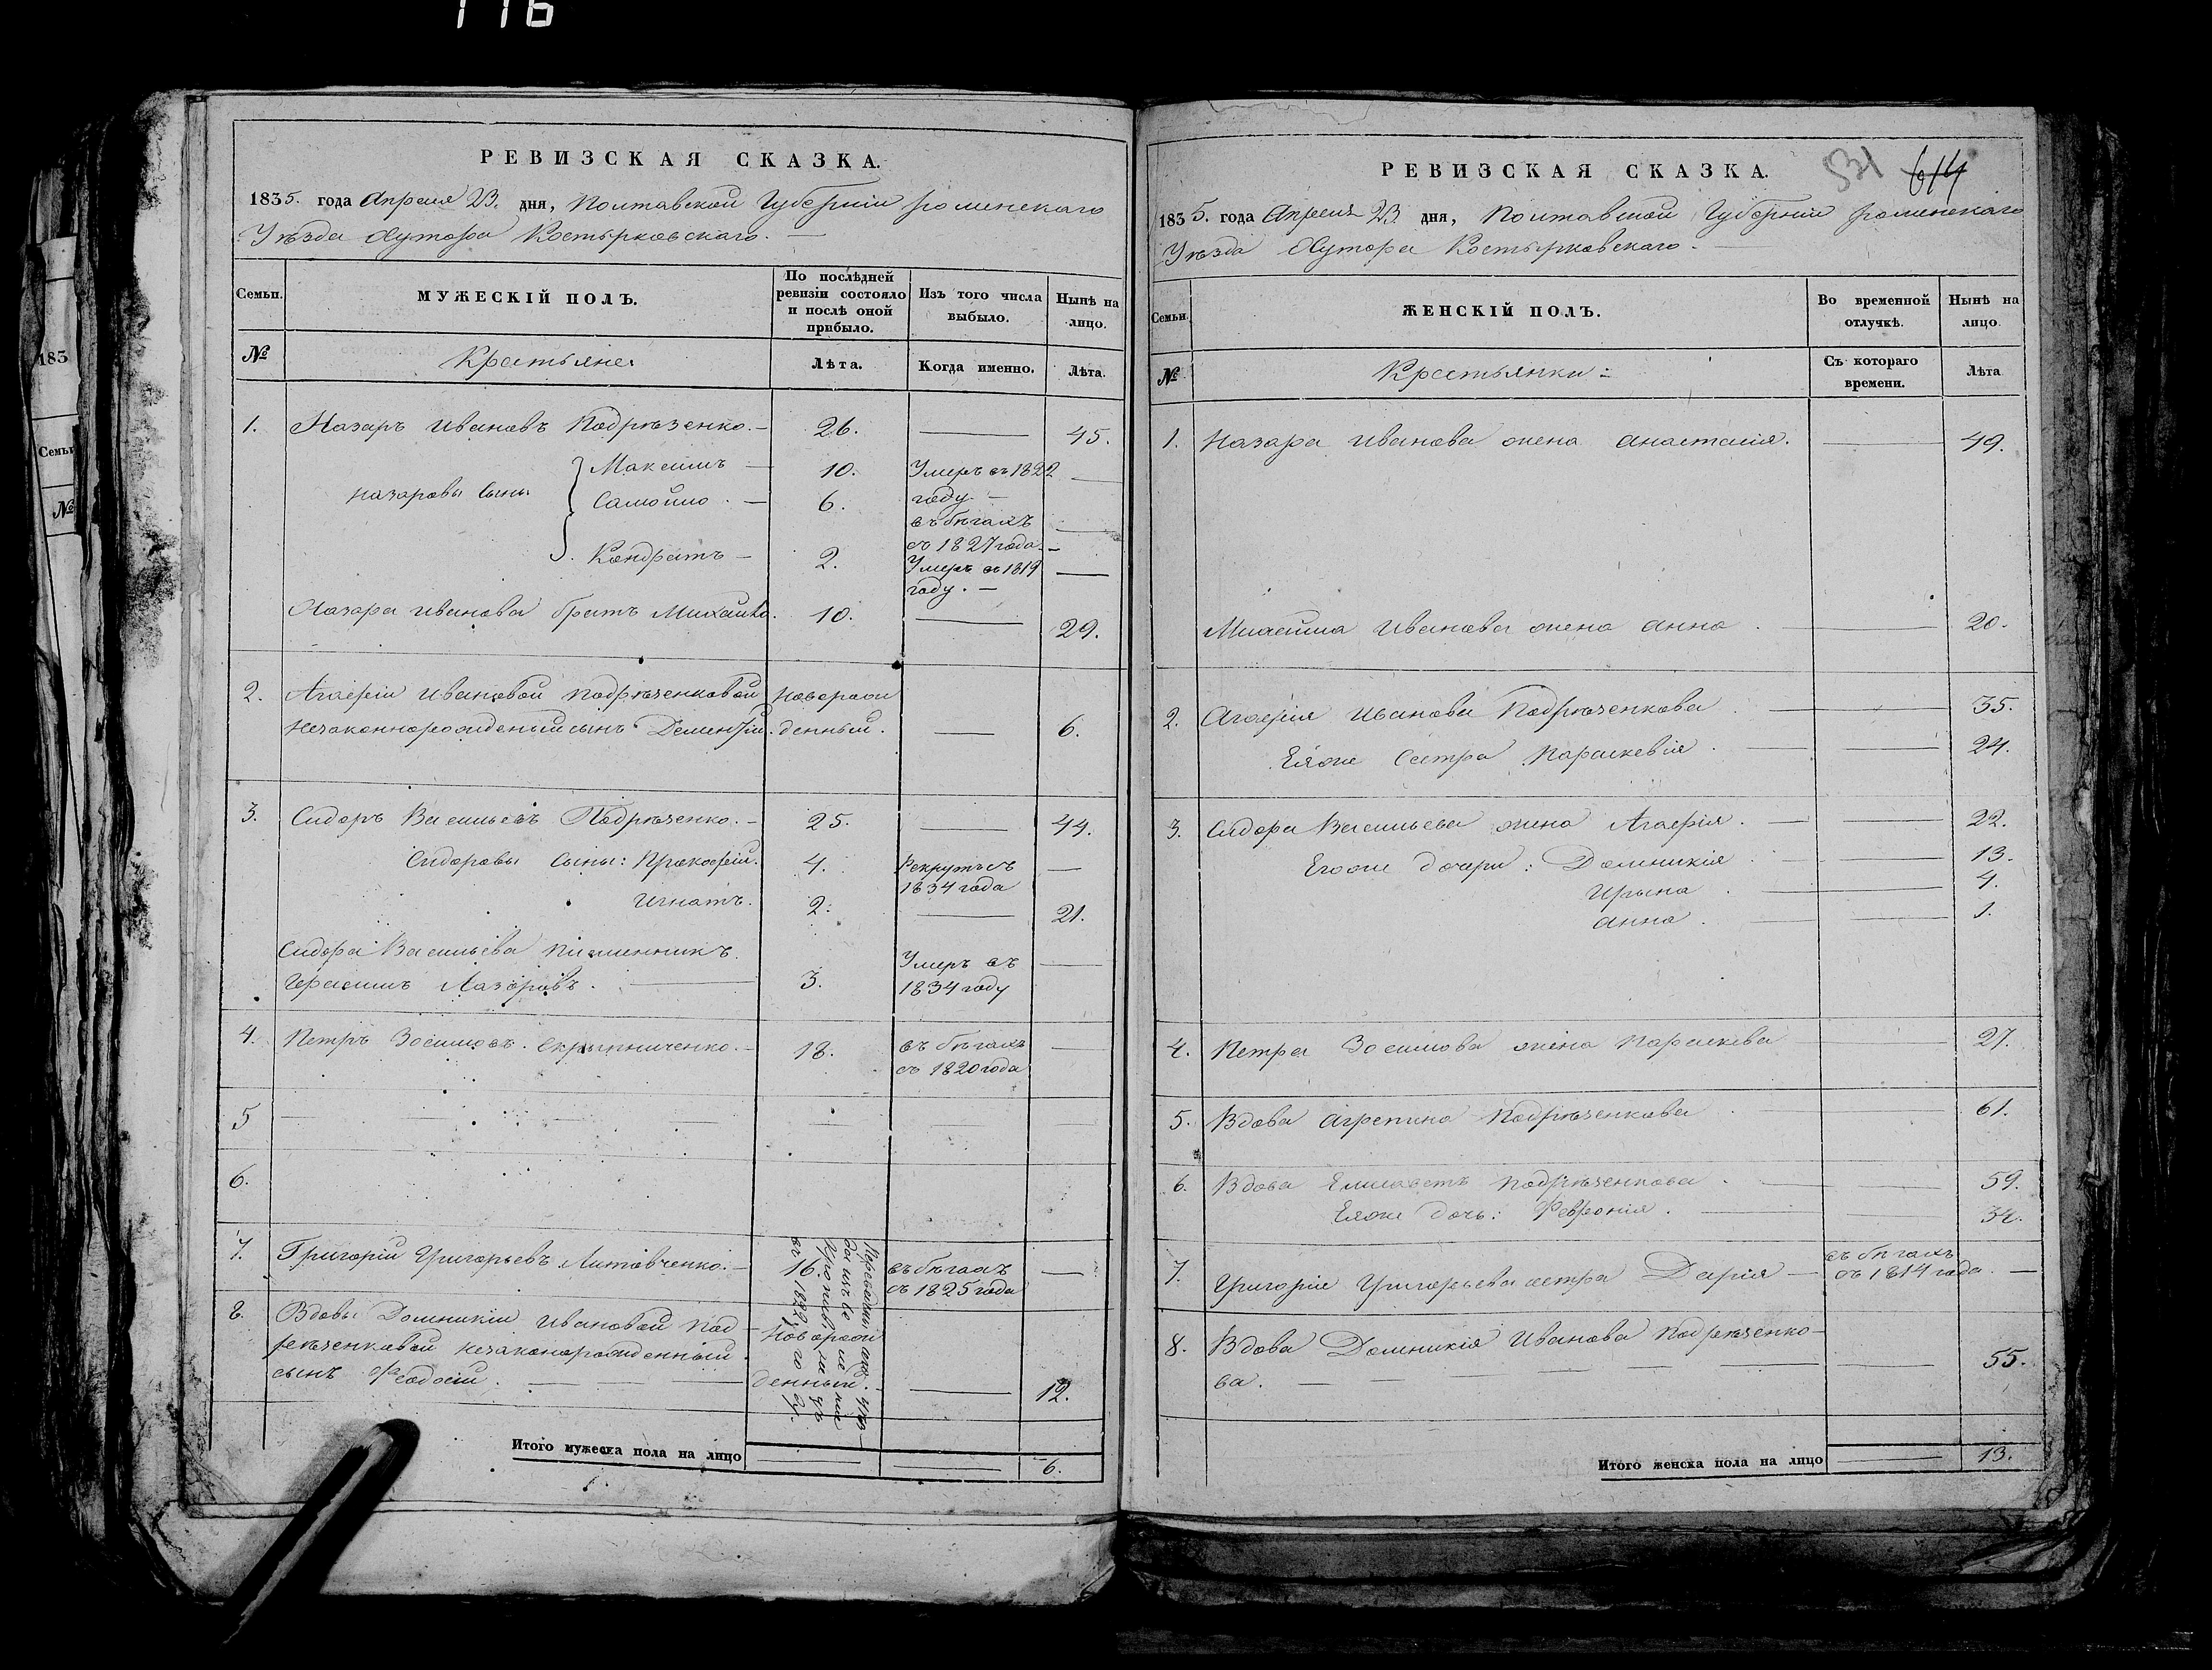 116
183
Семьи
№
РЕВИЗСКАЯ СКАЗКА.
1835. года Апреля 23. дня, Полтавской Губерніи роменскаго
Уѣзда Хутора Костырковскаго. —
Семьи.
МУЖЕСКІЙ ПОЛЪ.
По послѣдней ревизіи состояло и послѣ оной прибыло.
Изъ того числа выбыло.
Нынѣ на лицо.
№
Крестьяне.
Лѣта.
Когда именно.
Лѣта.
1. Назаръ Ивановъ Подрѣзенко. — 26. — 45.
Назаровы сыны
Максимъ — 10. Умеръ въ 1822 году. — —
Самойло. — 6. въ бѣгахъ съ 1827 года. — —
Кондратъ — 2. Умеръ въ 1819 году. — —
Назара Иванова братъ Михайло. 10. — 29.
2. Агафіи Ивановой Подрѣзенковой новорож
незаконнорожденый сынъ Дементій. денный. — 6.
3. Сидоръ Васильевъ Подрѣзенко. — 25. — 44.
Сидоровы сыны: Прокофій. 4. Рекрутъ съ 1834 года —
Игнатъ. 2. — 21.
Сидора Васильева племенникъ
Герасимъ Лазоровъ. — 3. Умеръ въ 1834 году —
4. Петръ Зосимовъ. Скрыпниченко. — 18. въ бѣгахъ съ 1820 года —
5 —
6.
7. Григорій Григорьевъ Литовченко. — 16. въ бѣгахъ съ 1825 года —
8. Вдовы Домникіи Ивановой Под
рѣзенковой незаконорожденный
сынъ Феодосій. — новорож
денный. — 12.
Итого мужеска пола на лицо — — 6.
РЕВИЗСКАЯ СКАЗКА.
531 614
1835. года Апреля 23 дня, Полтавской Губерніи роменскаго
Уѣзда Хутора Костырковскаго. —
Семьи.
ЖЕНСКІЙ ПОЛЪ.
Во временной отлучкѣ.
Нынѣ на лицо
№
Крестьянки:
Съ котораго времени.
Лѣта
1. Назара Иванова жена Анастасія. — 49.
Михайла Иванова жена Анна. — 20.
2. Агафія Иванова Подрѣзенкова — 35.
Еяже Сестра Параскевія. — 24.
3. Сидора Васильева жена Агафія. — 22.
Егоже дочери: Домникія — 13.
Ирына. — 4.
Анна. — 1.
4. Петра Зосимова жена Параскева — 27.
5. Вдова Агрепина Подрѣзенкова — 61.
6. Вдова Елисаветъ Подрѣзенкова. — 59.
Еяже дочь: Февронія. — 34.
7. Григорія Григорьева сестра Дарія — въ бѣгахъ съ 1814 года. —
8. Вдова Домникія Иванова Подрѣзенко-
ва. — 55.
Итого женска пола на лицо — 13.